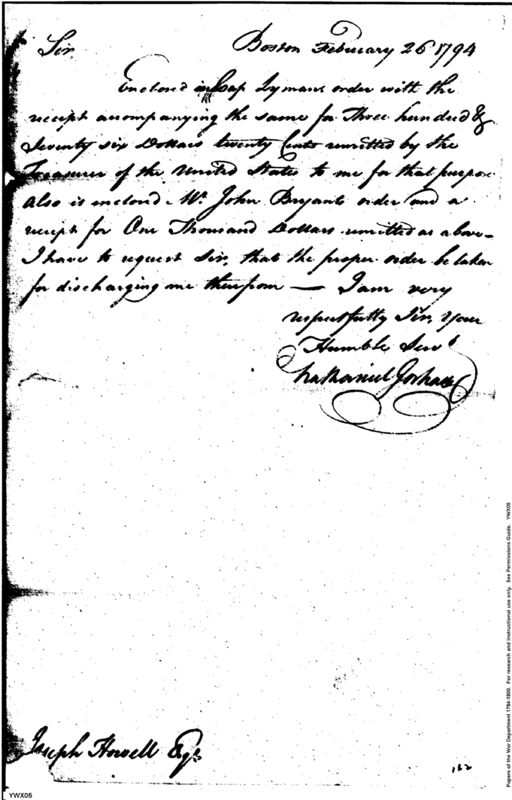 Sir
Boston February 26 1794
Enclosed is Cap Lymans order with the
receipt accompanying the same for Three hundred &
Seventy six Dollars twenty Cents remitted by the
Treasurer of the United States to me for that purpose
Also is enclosed Mr. John Bryants order and a
receipt for One Thousand Dollars remitted as above—
I have to request Sir, that the proper order be taken
for discharging me therefrom — I am very
respectfully Sir, Your
Humble Servt
Nathaniel Gorham
Joseph Howell Esqr
162
YWX05
Papers of the War Department 1784-1800. For research and instructional use only. See Permissions Guide. YWX05